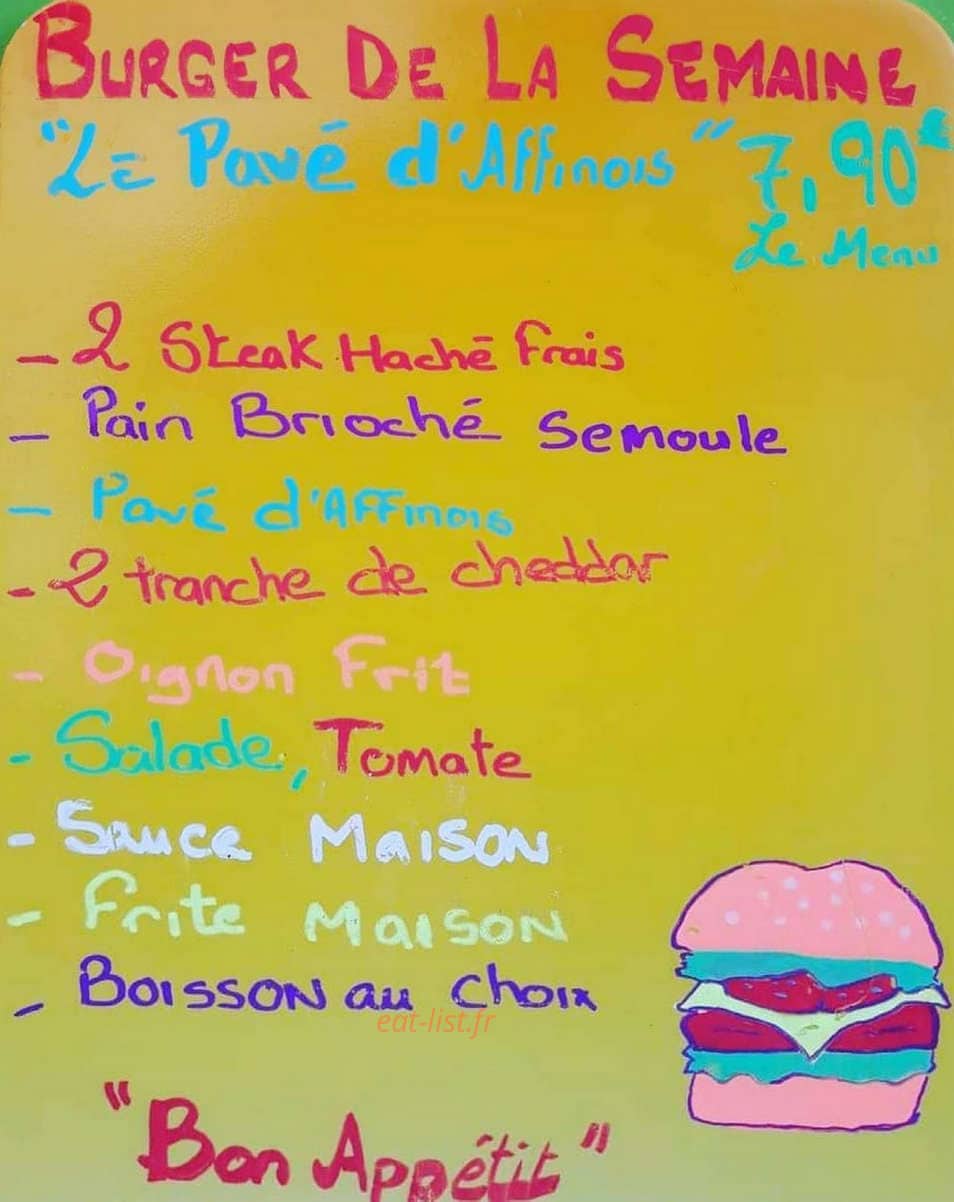 BURGER DE LA SEMAINE
"Le Pavé d'Affinois" 7,90€
Le Menu
- 2 Steak Haché frais
- Pain Brioché Semoule
- Pavé d'Affinois
- 2 tranche de cheddar
- Oignon Frit
- Salade, Tomate
- Sauce Maison
- Frite Maison
- Boisson au choix
eat-list.fr
"Bon Appétit"